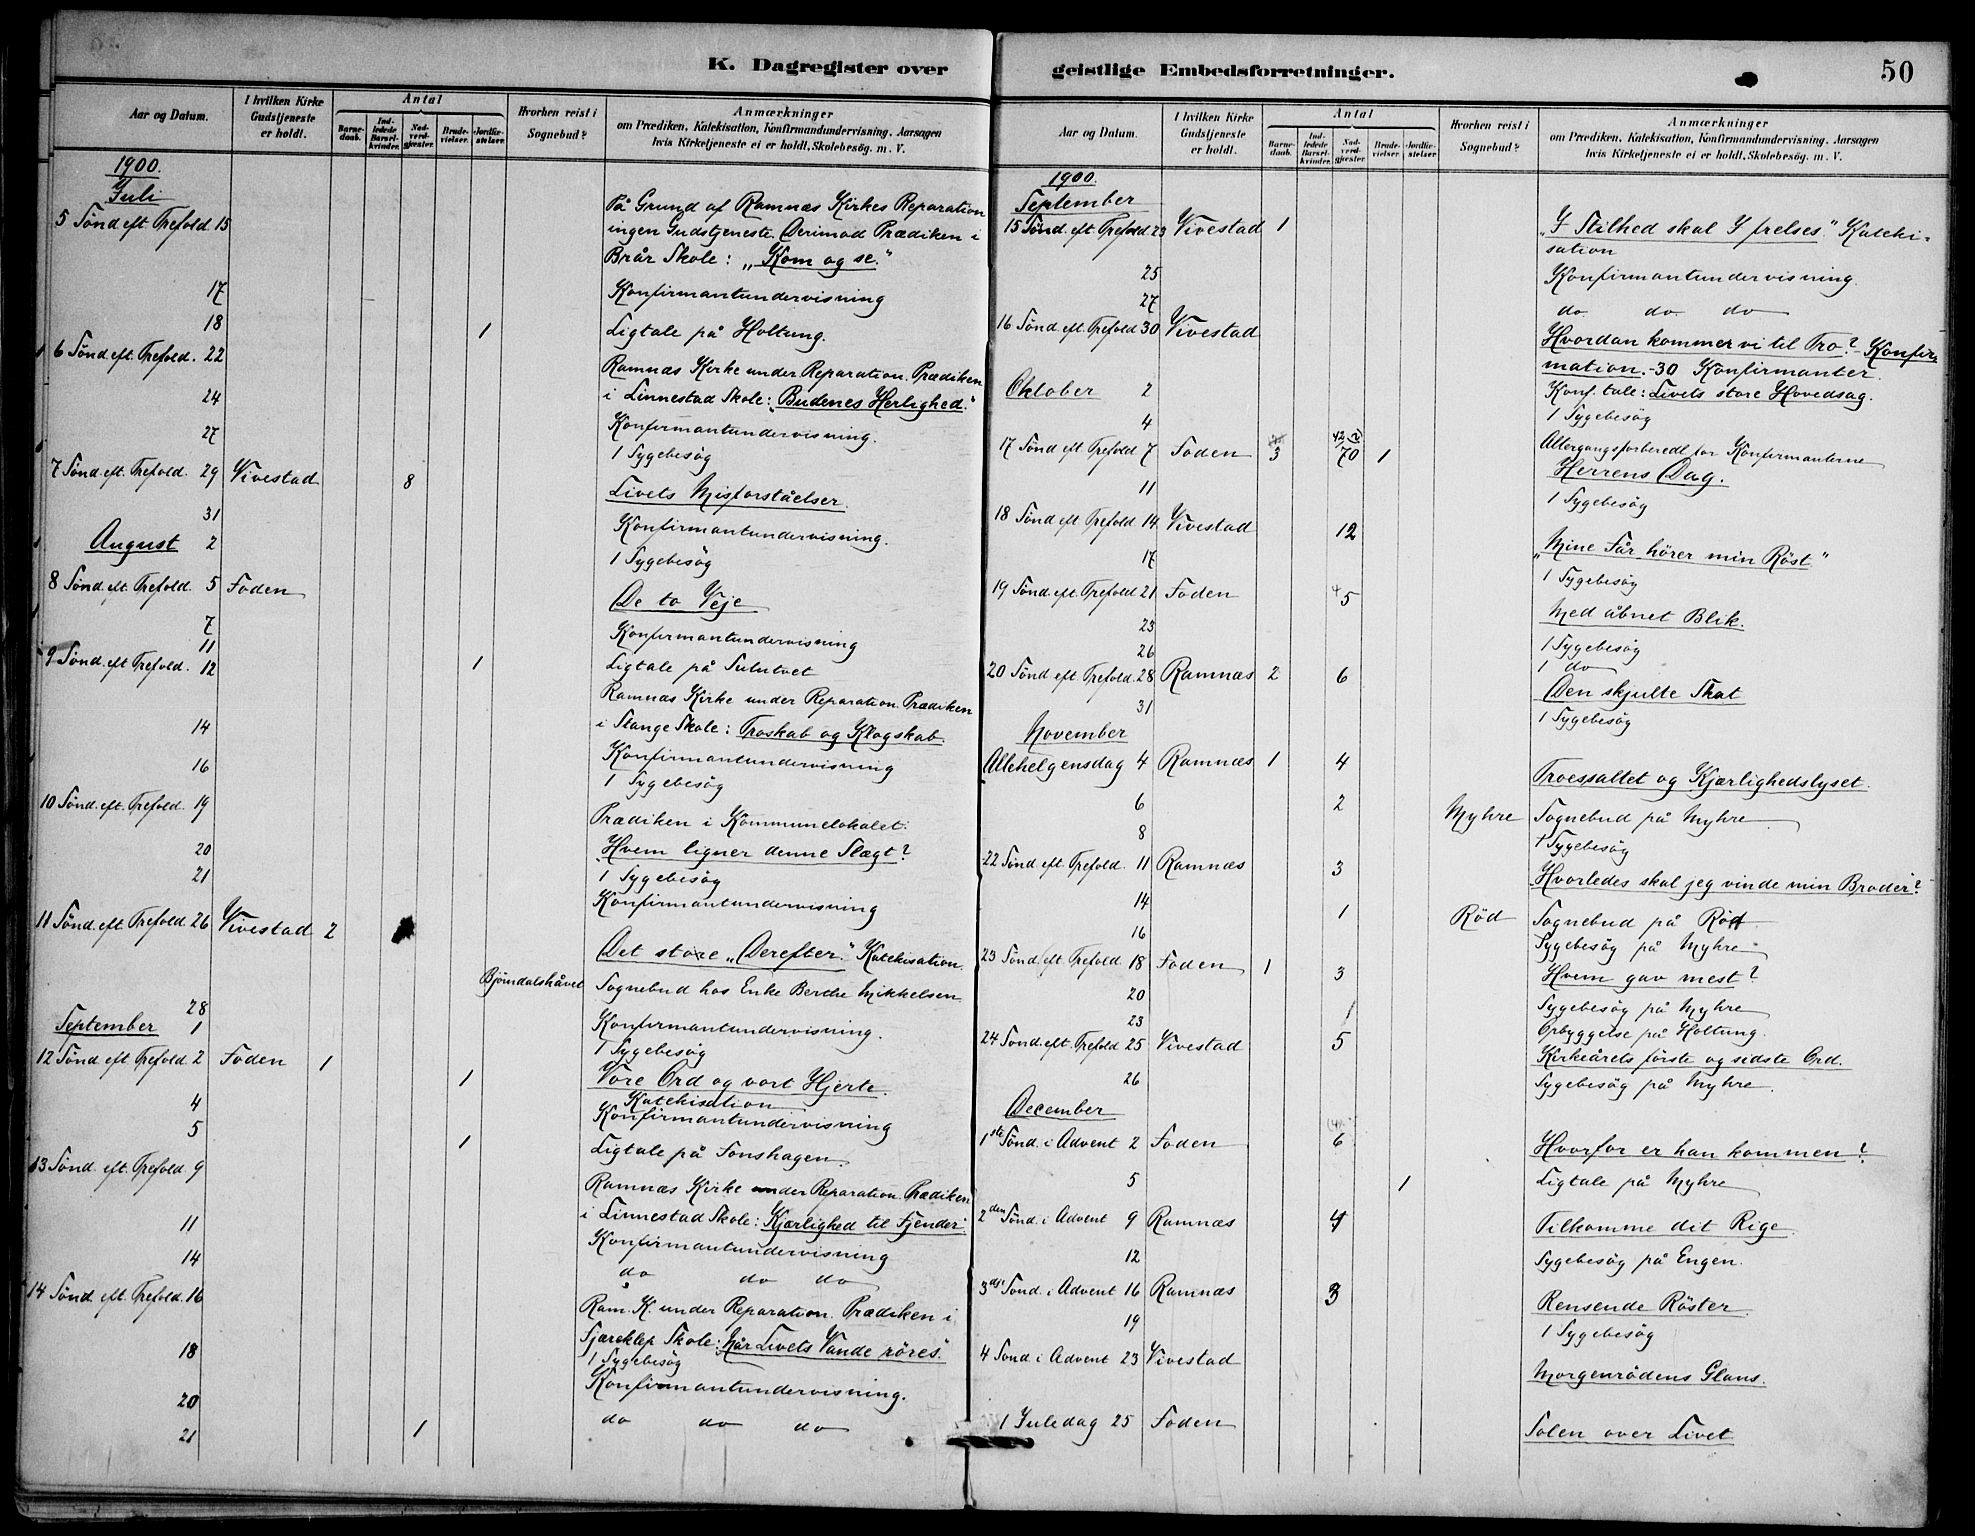 K. Dagregister over
Aar og Datum.
I hvilken Kirke Gudstjeneste er holdt.
Antal
Barne-daab.
Ind-ledede Barsel-kvinder.
Nad-verd-gjester.
Brude-vielser.
Jordfæ-stelser.
Hvorhen reist i Sognebud?
Anmærkninger
om Prædiken, Katekisation, Konfirmandundervisning. Aarsagen
hvis Kirketjeneste ei er holdt, Skolebesøg. m. V.
1900.
Juli
5 Sönd eft Trefold. 15 På Grund af Ramnæs Kirkes Reparation
ingen Gudstjeneste. Derimod Prædiken i
Brår Skole: „Kom og se."
17 Konfirmantundervisning
18 1 Ligtale på Holtung.
6 Sönd eft. Trefold. 22 Ramnæs Kirke under Reparation. Prædiken
i Linnestad Skole: „Budenes Herlighed."
24 Konfirmantundervisning.
27 1 Sygebesög
7 Sönd eft. Trefold. 29 Vivestad 8 Livets Misforståelser.
31 Konfirmantundervisning.
August 2 1 Sygebesög
8 Sönd. eft. Trefold. 5 Foden De to Veje
7 Konfirmantundervisning
11 1 Ligtale på
9 Sönd. eft Trefold. 12 Ramnæs Kirke under Reparation. Prædiken
i Stange Skole: Troskab og Klogskab.
14 Konfirmantundervisning
16 1 Sygebesög
10 Sönd. eft. Trefold. 19 Prædiken i Kommunelokalet:
Hvem ligner denne Slægt?
20 1 Sygebesög
21 Konfirmantundervisning
11 Sönd. eft Trefold. 26 Vivestad 2 Det store „Derefter." Katekisation.
Bjömdalshåvet Sognebud hos Enke Berthe Mikkelsen
28 Konfirmantundervisning.
September 1 1 Sygebesög
12 Sönd eft Trefold. 2 Foden 1 1 Vore Ord og vort Hjerte.
Katekisation
4 Konfirmantundervisning
5 1 Ligtale på Fonshagen.
13 Sönd. eft. Trefold. 9 Ramnæs Kirke under Reparation. Prædiken
i Linnestad Skole: Kjærlighed til Fjender.
11 Konfirmantundervisning
14 do do do
14 Sönd. eft. Trefold. 16 Ram. K. under Reparation. Prædiken i
Skole: „Når Livets Vande röres".
1 Sygebesög
18 Konfirmantundervisning.
20 do do do
21 1
geistlige Embedsforretninger.
50
Aar og Datum.
I hvilken Kirke Gudstjeneste er holdt.
Antal
Barne-daab.
Ind-ledede Barsel-kvinder.
Nad-verd-gjester.
Brude-vielser.
Jordfæ-stelser.
Hvorhen reist i Sognebud?
Anmærkninger
om Prædiken, Katekisation, Konfirmandundervisning. Aarsagen
hvis Kirketjeneste ei er holdt, Skolebesøg. m. V.
1900.
September
15 Sönd. eft Trefold 23 Vivestad 1 „I Stilhed skal I frelses." Kateki-
sation
25 Konfirmantundervisning.
27 do do do
16 Sönd eft. Trefold 30 Vivestad Hvordan kommer vi til Tro? - Konfir-
mation. - 30 Konfirmanter.
Konf. tale: Livets store Hovedsag.
Oktober 2 1 Sygebesög
4 Altergangsforberedl for Konfirmanterne
17 Sönd eft Trefold 7 Foden 3 42 70 1 Herrens Dag.
11 1 Sygebesög
18 Sönd eft Trefold 14 Vivestad 12 „Mine Får hörer min Röst"
17 1 Sygebesög
19 Sönd. eft. Trefold 21 Foden 4 5 Med åbnet Blik.
23 1 Sygebesög
26 1 do
20 Sönd eft Trefold. 28 Ramnæs 2 6 Den skjulte Skat
31 1 Sygebesög
November
Allehelgensdag 4 Ramnæs 1 4 Troessaltet og Kjærlighedslyset.
6 2 Myhre Sognebud på Myhre
8 1 Sygebesög
22 Sönd eft Trefold. 11 Ramnæs 3 Hvorledes skal jeg vinde min Broder?
14 1 Röd Sognebud på Röd
16 Sygebesög på Myhre
23 Sönd. eft Trefold 18 Foden 1 3 Hvem gav mest?
20 Sygebesög på Myhre
23 Opbyggelse på Holtung.
24 Sönd. eft Trefold 25 Vivestad 5 Kirkeårets förste og sidste Ord.
26 Sygebesög på Myhre.
December
1ste Sönd. i Advent 2 Foden (4) 6 Hvorfor er han kommen?
5 1 Ligtale på Myhre
2den Sönd. i Advent 9 Ramnæs 4 Tilkomme dit Rige
12 Sygebesög på Engen.
3die Sönd. i Advent 16 Ramnæs 3 Rensende Röster.
19 1 Sygebesög
4 Sönd i Advent 23 Vivestad Morgenrödens Glans.
1 Juledag 25 Foden Solen over Livet